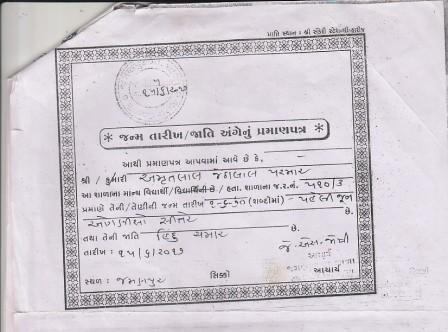 પ્રાપ્તિ સ્થાન : શ્રી
૧૫/૬/૨૦૧૭
* જન્મ તારીખ/જાતિ અંગેનું પ્રમાણપત્ર *
આથી પ્રમાણપત્ર આપવામાં આવે છે કે,
શ્રી / કુમારી અમૃતલાલ જેઠાલાલ પરમાર
આ શાળાના માન્ય વિદ્યાર્થી / વિદ્યાર્થિની છે / હતા. શાળાના જ.ર.નં. ૫૨૦/૩
પ્રમાણે તેની/તેણીની જન્મ તારીખ ૧-૬-૭૦ (શબ્દોમાં) - પહેલી જૂન
ઓગણીસો સીત્તેર છે.
તથા તેની જાતિ હિંદુ ચમાર છે.
તારીખ : ૧૫/૬/૨૦૧૭ જે. એસ. જોષી
સ્થળ : જમણપુર સિક્કો આચાર્ય